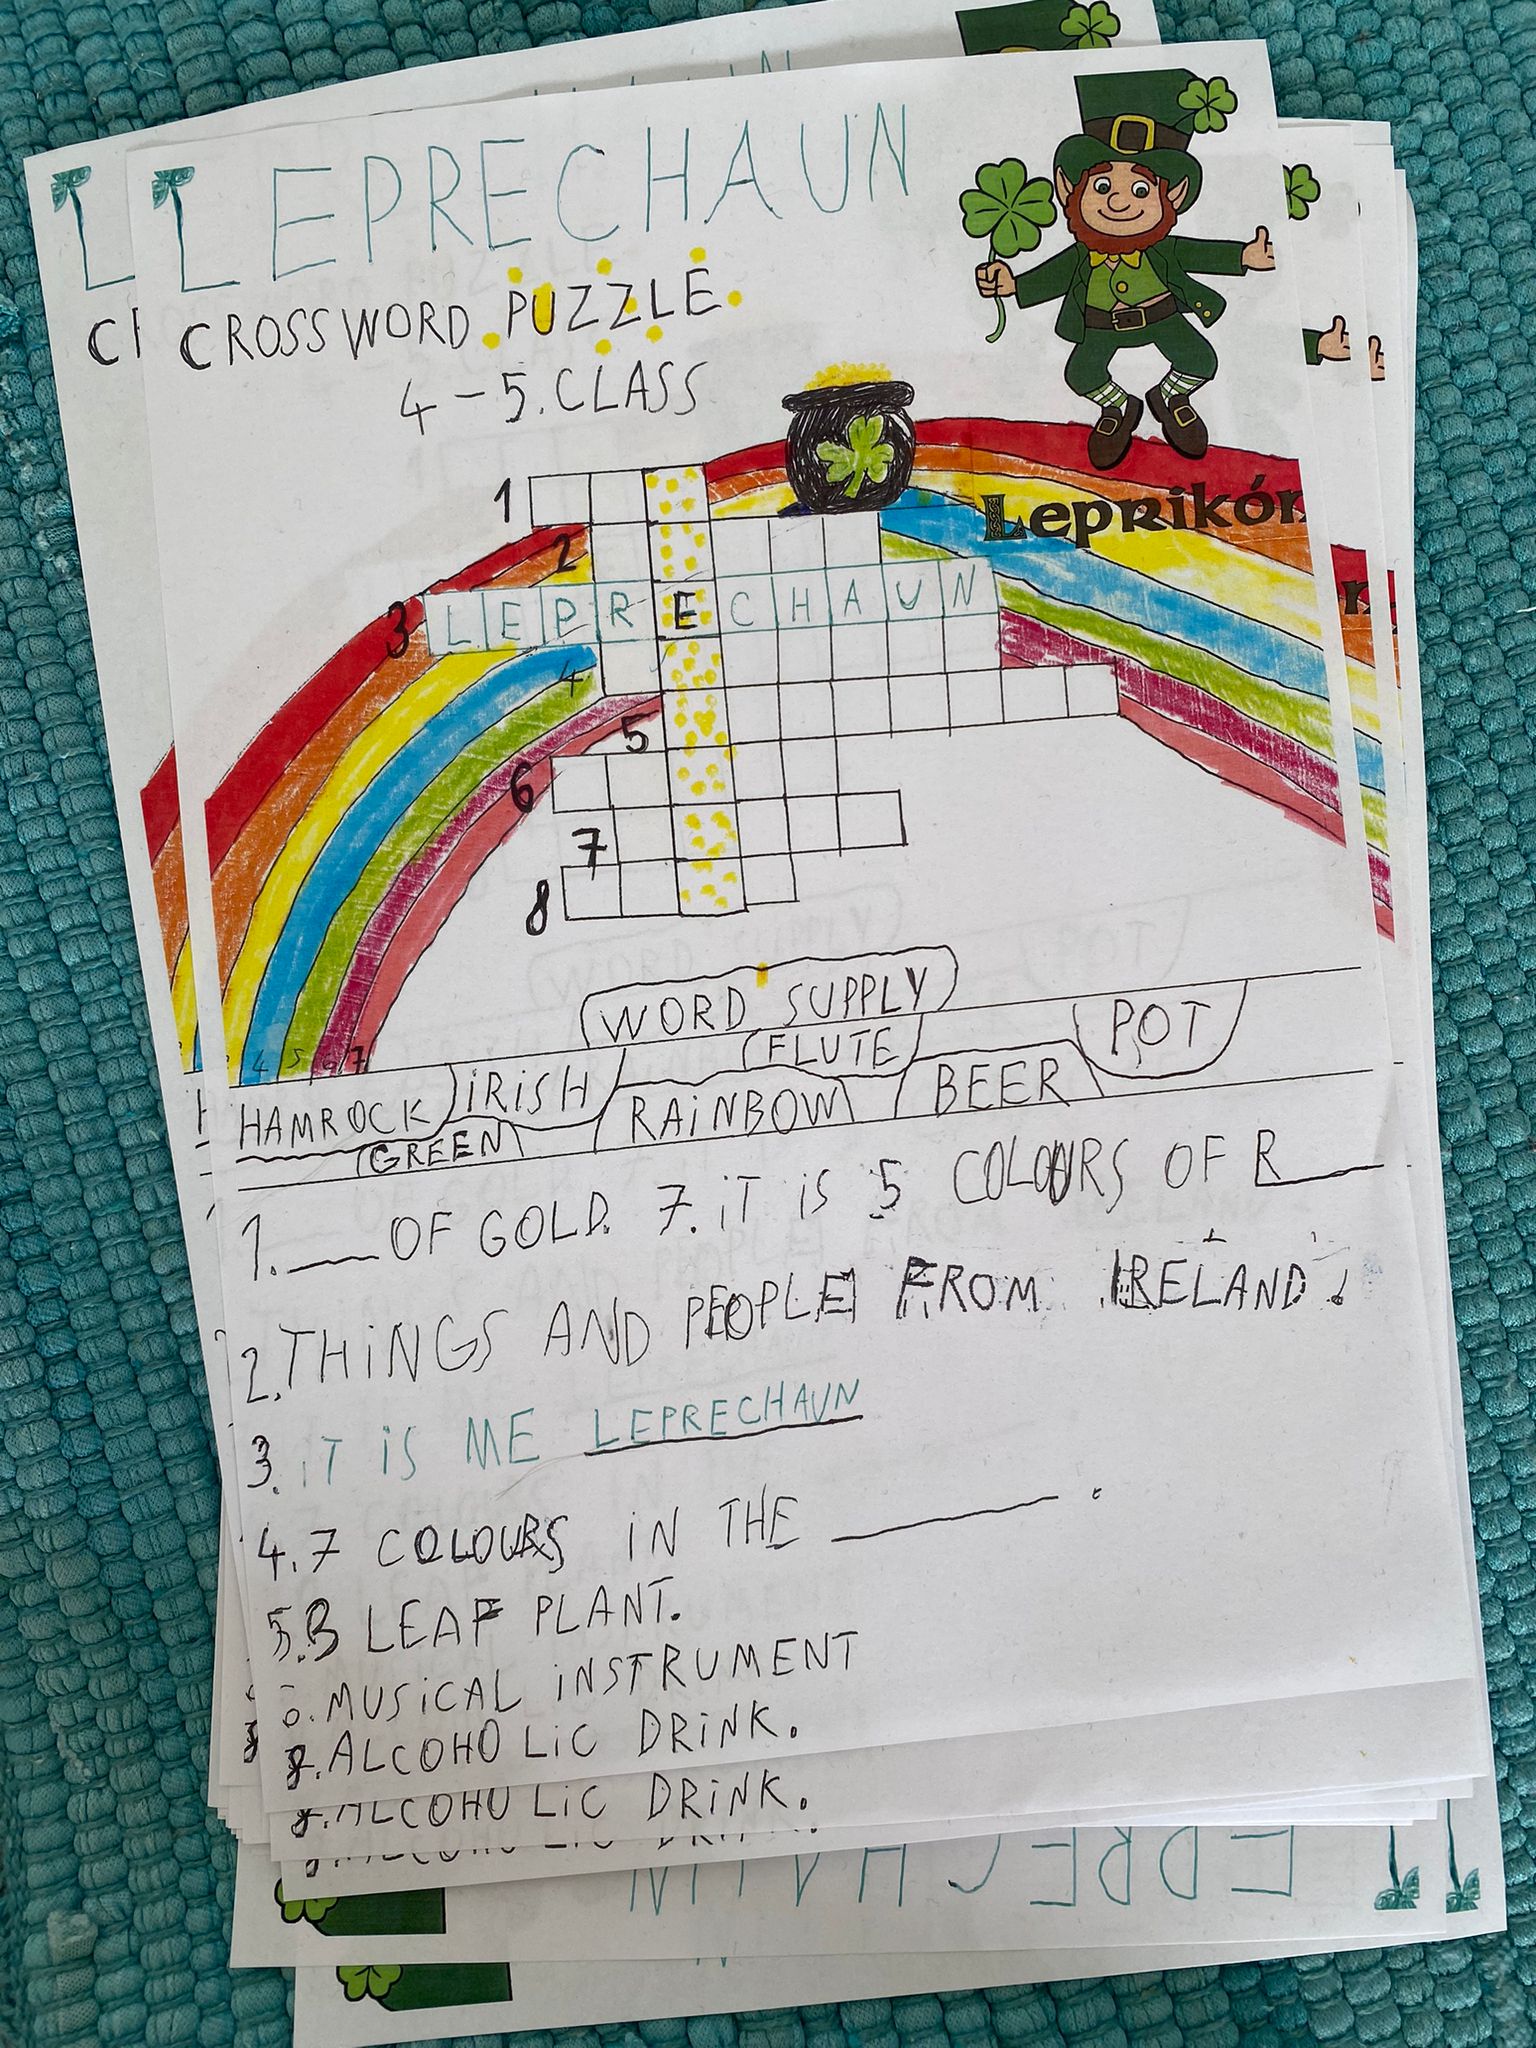 LEPRECHAUN
CROSSWORD PUZZLE
4-5. CLASS
Leprikón
1
2
3 LEPRECHAUN
4
5
6
7
8
4 5 6 7
WORD SUPPLY
HAMROCK IRISH FLUTE POT
GREEN RAINBOW BEER
1. ___ OF GOLD. 7. IT IS 5 COLOURS OF R___
2. THINGS AND PEOPLE FROM IRELAND.
3. IT IS ME LEPRECHAUN
4. 7 COLOURS IN THE ___.
5. 3 LEAF PLANT.
6. MUSICAL INSTRUMENT
8. ALCOHOLIC DRINK.
8. ALCOHOLIC DRINK.